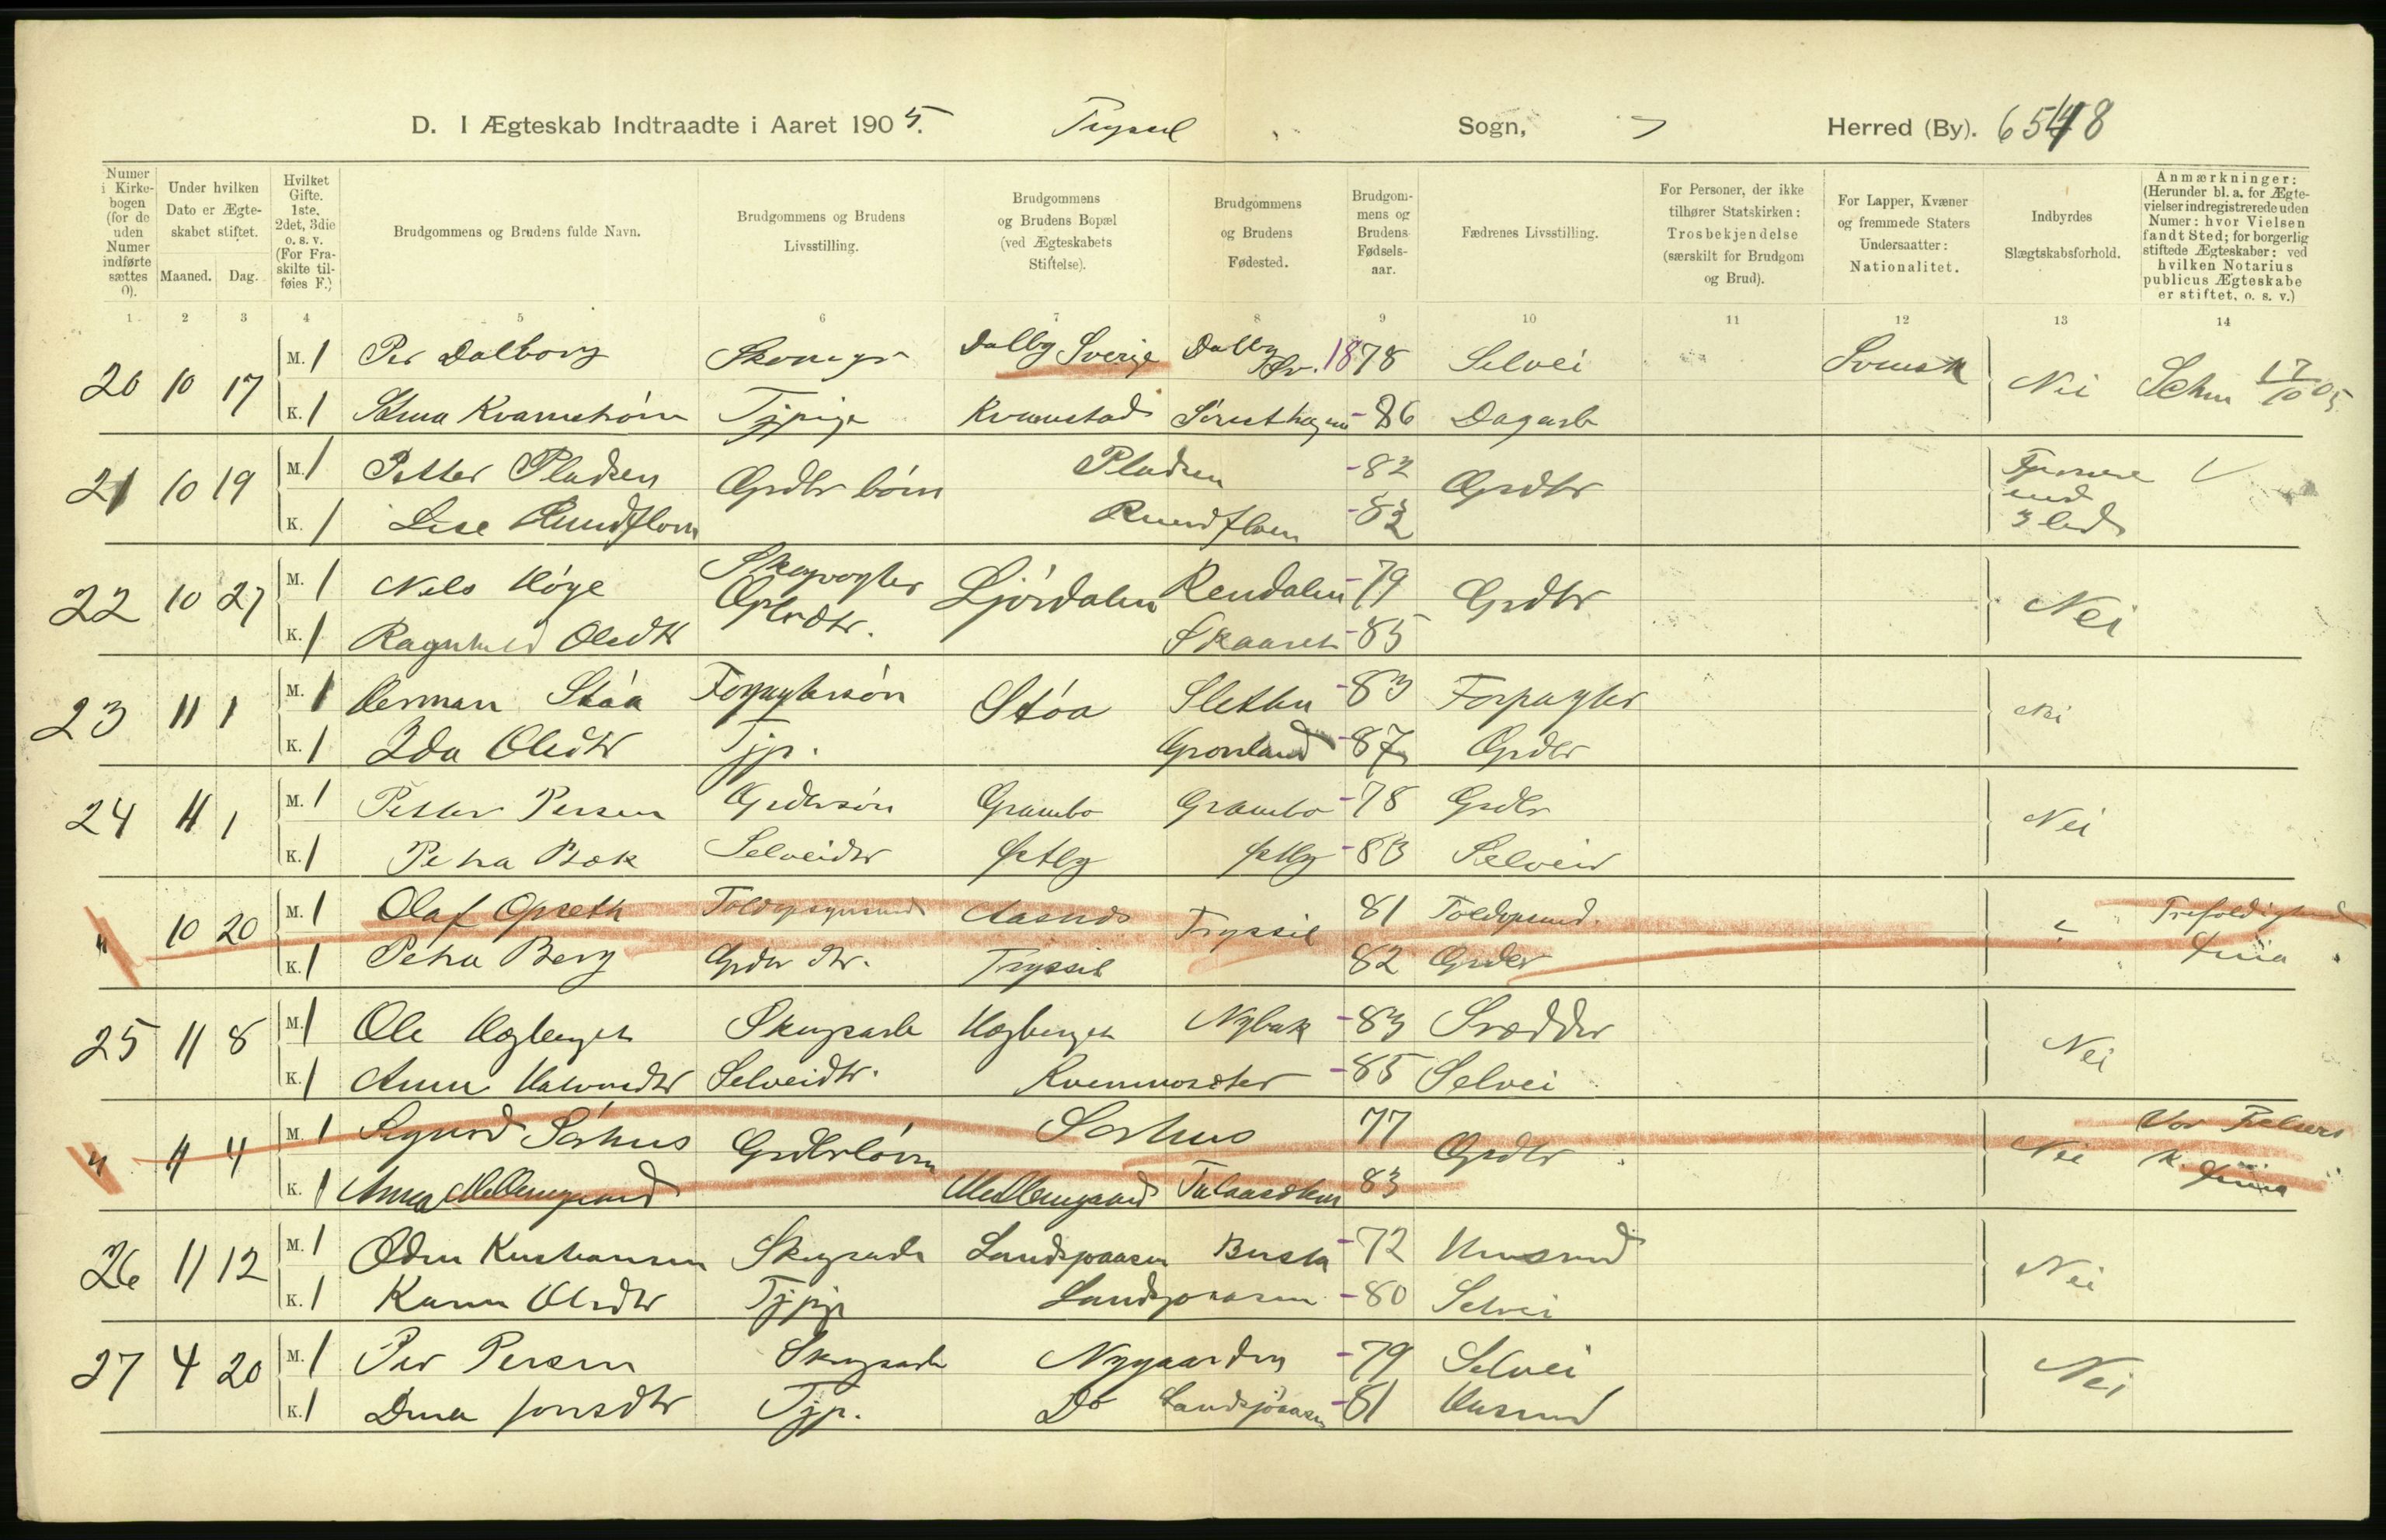 D. I Ægteskab Indtraadte i Aaret 1905. Trysil Sogn, Herred (By). 6548
Numer i Kirke-bogen (for de uden Numer indførte sættes 0).
Under hvilken Dato er Ægte-skabet stiftet.
Maaned. Dag.
Hvilket Gifte. 1ste, 2det, 3die o. s. v. (For Fra-skilte til-føies F.)
Brudgommens og Brudens fulde Navn.
Brudgommens og Brudens Livsstilling.
Brudgommens og Brudens Bopæl (ved Ægteskabets Stiftelse).
Brudgommens og Brudens Fødested.
Brudgom-mens og Brudens Fødsels-aar.
Fædrenes Livsstilling.
For Personer, der ikke tilhører Statskirken: Trosbekjendelse (særskilt for Brudgom og Brud).
For Lapper, Kvæner og fremmede Staters Undersaatter: Nationalitet.
Indbyrdes Slægtskabsforhold.
Anmærkninger: (Herunder bl. a. for Ægte-vielser indregistrerede uden Numer: hvor Vielsen fandt Sted; for borgerlig stiftede Ægteskaber: ved hvilken Notarius publicus Ægteskabe er stiftet, o. s. v.)
1 2 3 4 5 6 7 8 9 10 11 12 13 14
20 10 17 M. 1 Per Dalborg Dalby Sverige Dalby Sv. 1878 Selvei Svensk Nei 17/10 05
K. 1 Tjpige -86 Dagarb
21 10 19 M. 1 Petter Pladsen Grdbr børn Pladsen -82 Grdbr
K. 1 Lise Rundfloen Rundfloen -82 3 led
22 10 27 M. 1 Nils Høye Skogvogter Ljørdalen Rendalen -79 Grdbr Nei
K. 1 Ragnhild Olsdtr Skaaret -85
23 11 1 M. 1 Herman Støa Forpagtersøn Støa Sletten -83 Forpagter Nei
K. 1 Ida Olsdtr Tjp. Grønland -87 Grdbr
24 11 1 M. 1 Petter Persen Grdbrsøn Grambo Grambo -78 Grdbr Nei
K. 1 Petra Bæk Selveidtr -83 Selveier
" 10 20 M. 1 Olaf Opseth Aasnes Trysil 81 Trefoldighed
K. 1 Petra Berg Grdbr dtr. Trysil 82 Grdbr Kria
25 11 8 M. 1 Ole Høgberget Skogsarb Høgberget Nybak -83 Skrædder Nei
K. 1 Anne Halvordtr Selveidtr. -85 Selvei
" 11 4 M. 1 Sigurd Sørhus Grdbrbørn Sørhus 77 Grdbr Nei Vor Frelsers
K. 1 Anna Mellemgaard Mellemgaard 83 K. Kria
26 11 12 M. 1 Oden Kristiansen Skogsarb Landsjøaasen -72 Husmd Nei
K. 1 Karen Olsdtr Tjpige Landsjøaasen -80 Selvei
27 4 20 M. 1 Per Persen Skogsarb Nygaarden -79 Selvei Nei
K. 1 Dina Jonsdtr Tjp. Do Landsjøaasen -81 Husmd